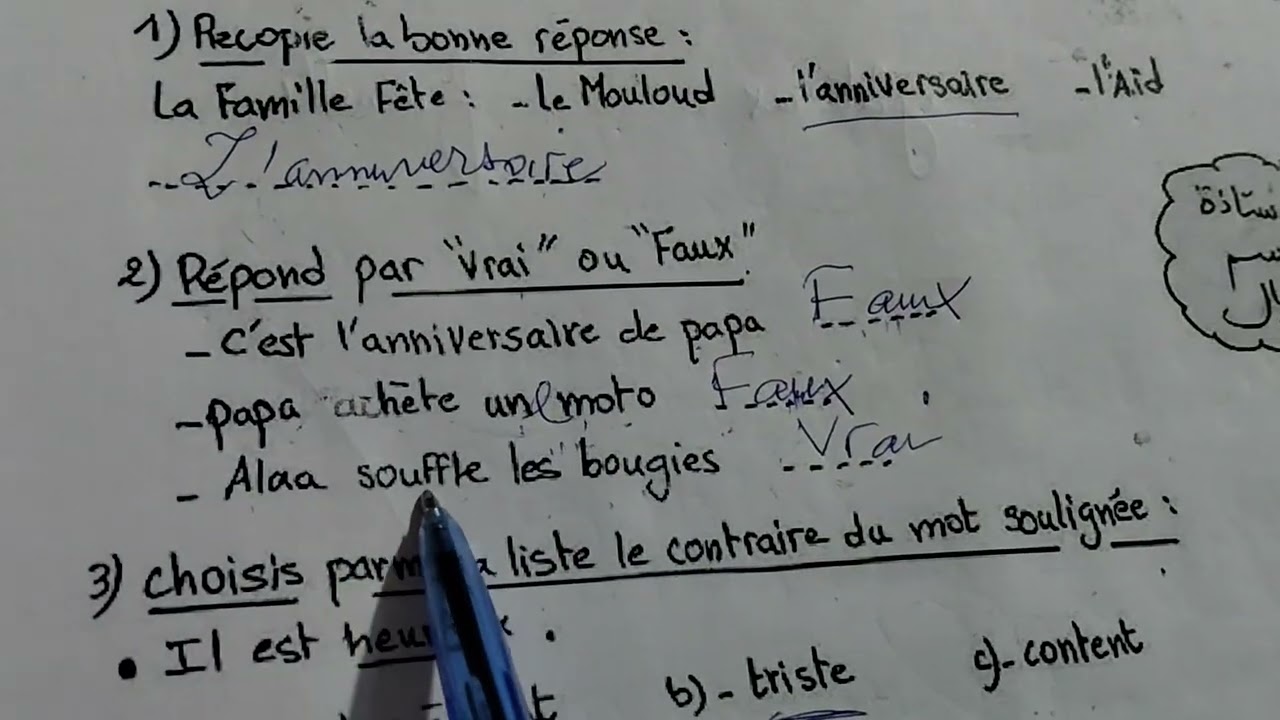 1) Recopie la bonne réponse :
La Famille Fête : - le Mouloud - l'anniversaire - l'Aïd
L'anniversaire
2) Répond par "Vrai" ou "Faux"
- C'est l'anniversaire de papa Faux
- papa achète une moto Faux
- Alaa souffle les bougies Vrai
3) choisis la liste le contraire du mot soulignée :
• Il est .
b) - triste c) - content